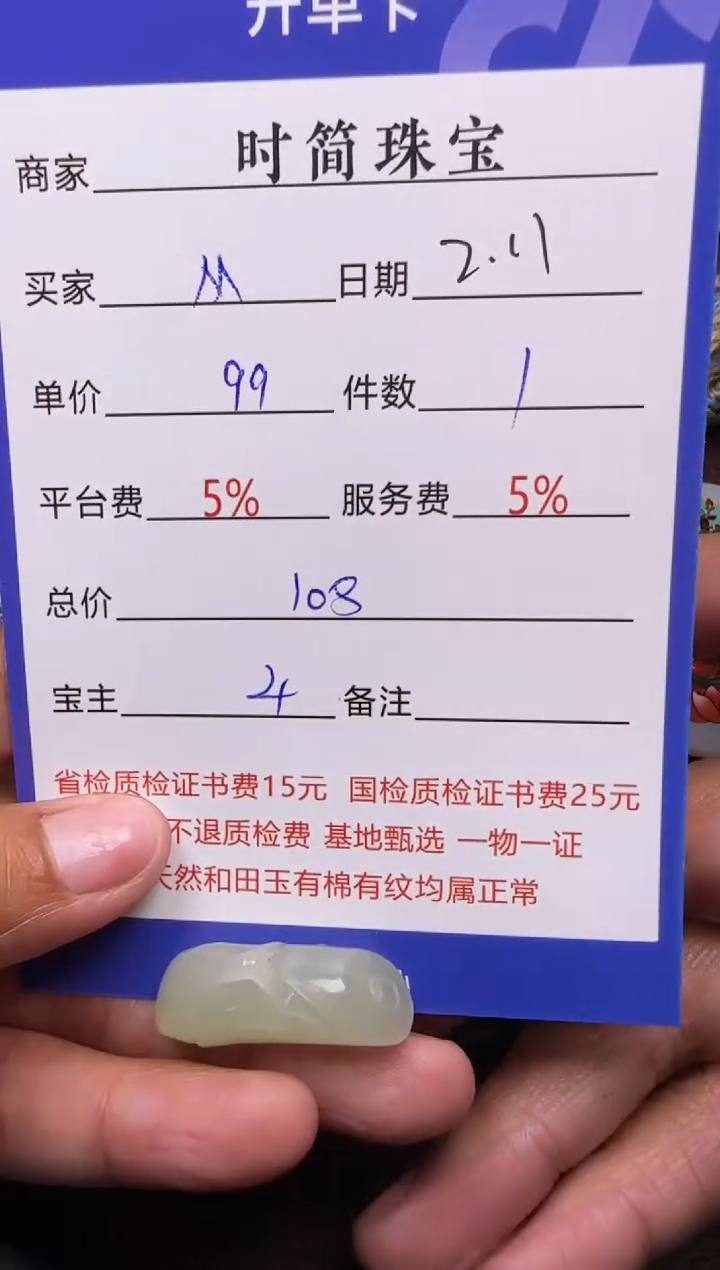 开单卡
商家 时简珠宝
买家 M 日期 2.11
单价 99 件数 1
平台费 5% 服务费 5%
总价 108
宝主 4 备注
省检质检证书费15元 国检质检证书费25元
不退质检费 基地甄选 一物一证
天然和田玉有棉有纹均属正常